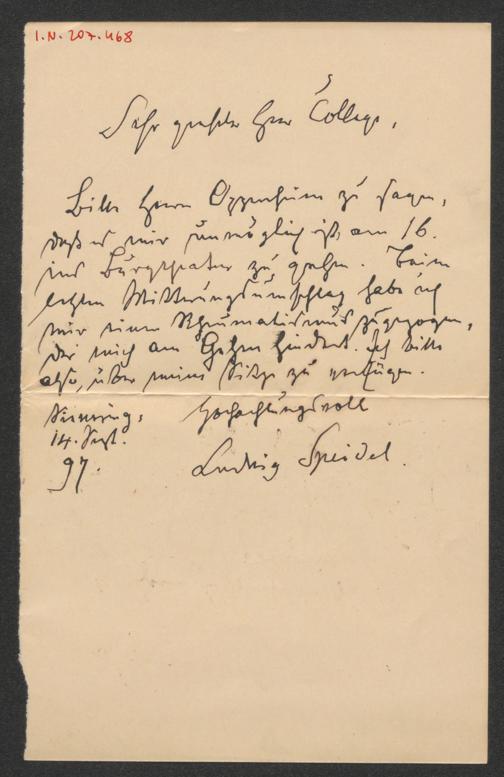 I.N. 207.468
Sehr geehrter Herr College,
Bitte Herrn Oppenheim zu sagen,
daß es mir unmöglich ist, am 16.
ins Burgtheater zu gehen. Beim
letzten Witterungsumschlag habe ich
mir einen Rheumatismus zugezogen,
der mich am Gehen hindert. Ich bitte
also, über meine Sitze zu verfügen.
Hochachtungsvoll
14. Sept.
97.
Ludwig Speidel.